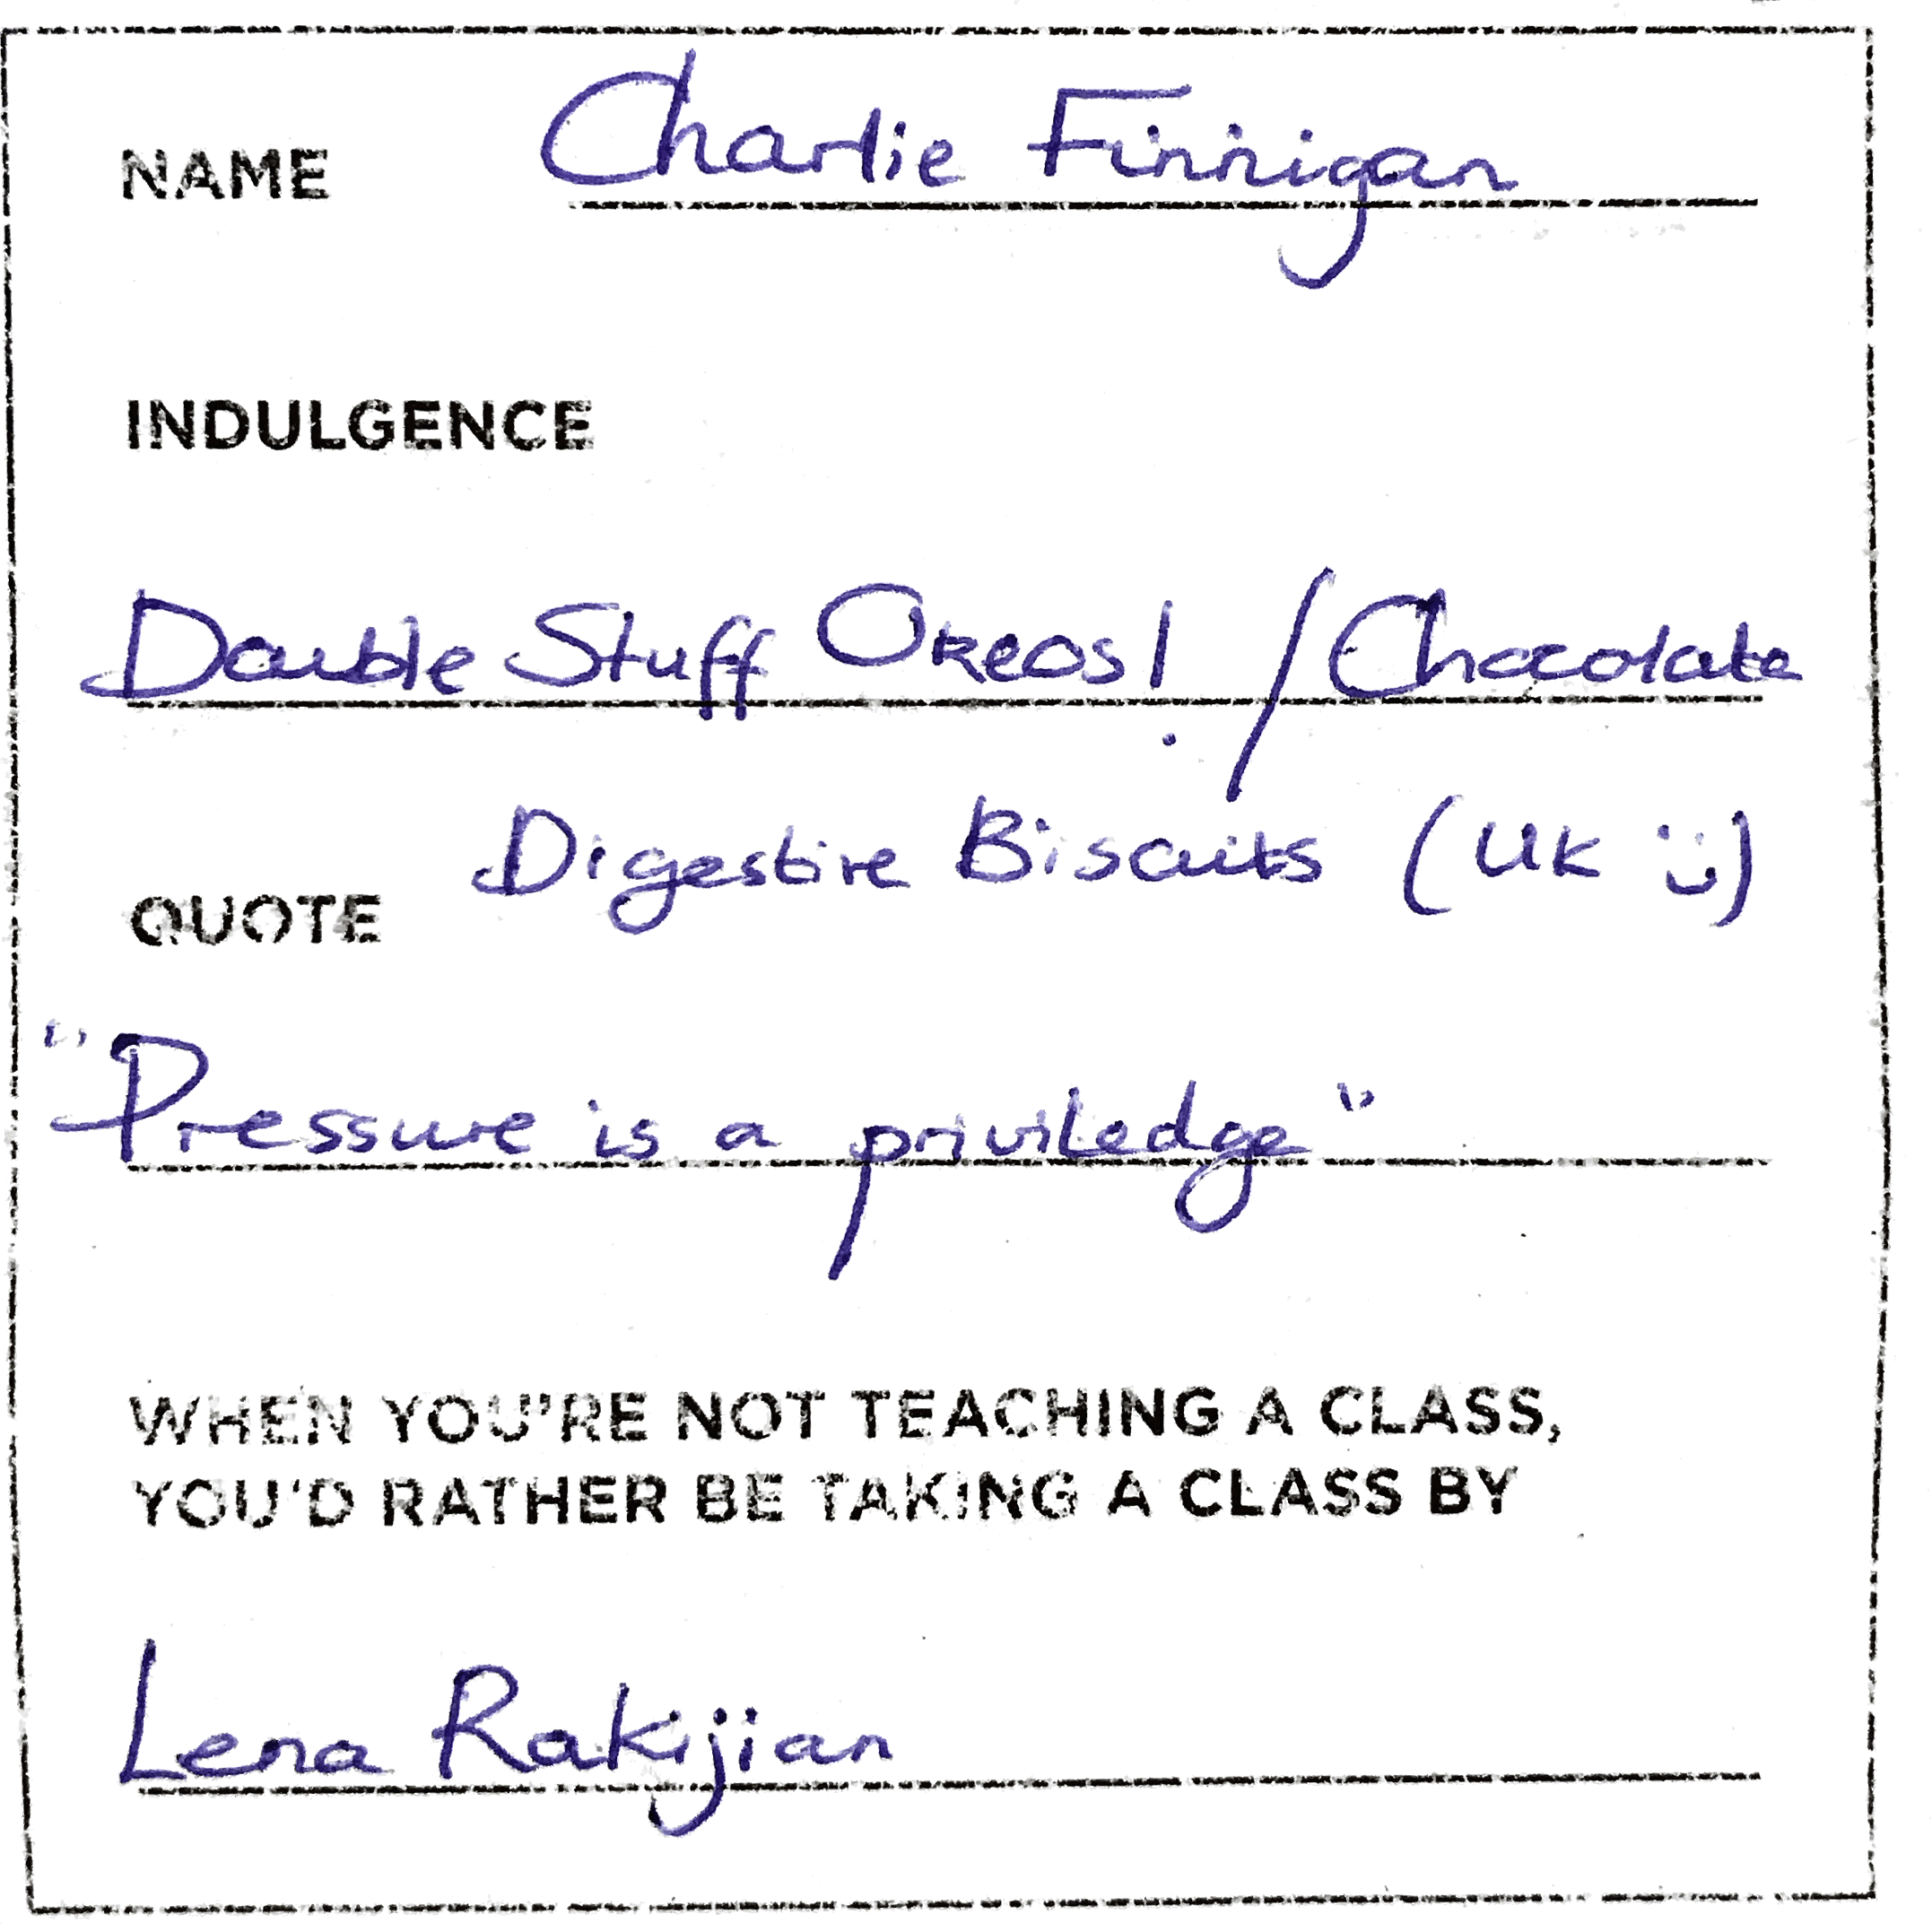 NAME Charlie Finnigan
INDULGENCE
Double Stuff Oreos! / Chocolate
Digestive Biscuits (UK :))
QUOTE
"Pressure is a priviledge"
WHEN YOU'RE NOT TEACHING A CLASS,
YOU'D RATHER BE TAKING A CLASS BY
Lena Rakijian